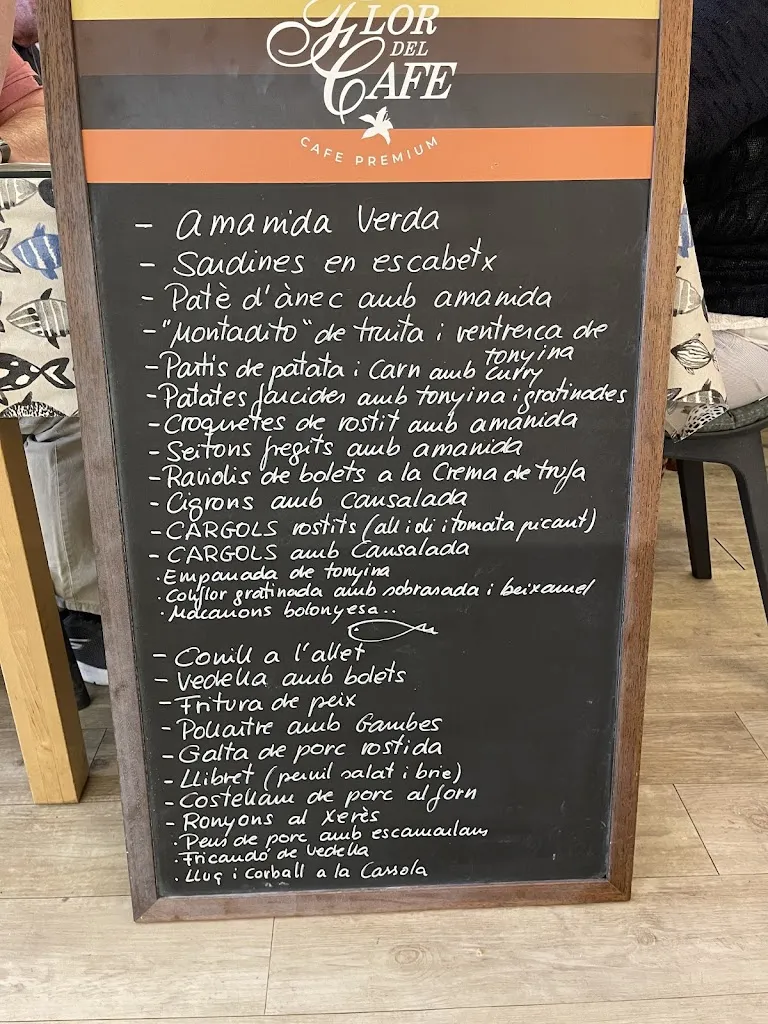 FLOR
DEL
CAFE
CAFE PREMIUM
- Amanida Verda
- Sardines en escabetx
- Patè d'ànec amb amanida
- "Montadito" de truita i ventresca de
tonyina
- Pastís de patata i Carn amb curry
- Patates farcides amb tonyina i gratinades
- Croquetes de rostit amb amanida
- Seitons fregits amb amanida
- Raviolis de bolets a la Crema de trufa
- Cigrons amb Cansalada
- CARGOLS rostits (all i oli i tomata picant)
- CARGOLS amb Cansalada
· Empanada de tonyina
· Coliflor gratinada amb sobrasada i beixamel
· Macarrons bolonyesa..
- Conill a l'allet
- Vedella amb bolets
- Fritura de peix
- Pollastre amb Gambes
- Galta de porc rostida
- LLibret (pernil salat i brie)
- Costellam de porc al forn
- Ronyons al Xerès
· Peus de porc amb escamarlans
· Fricandó de Vedella
· LLuç i Corball a la Cassola